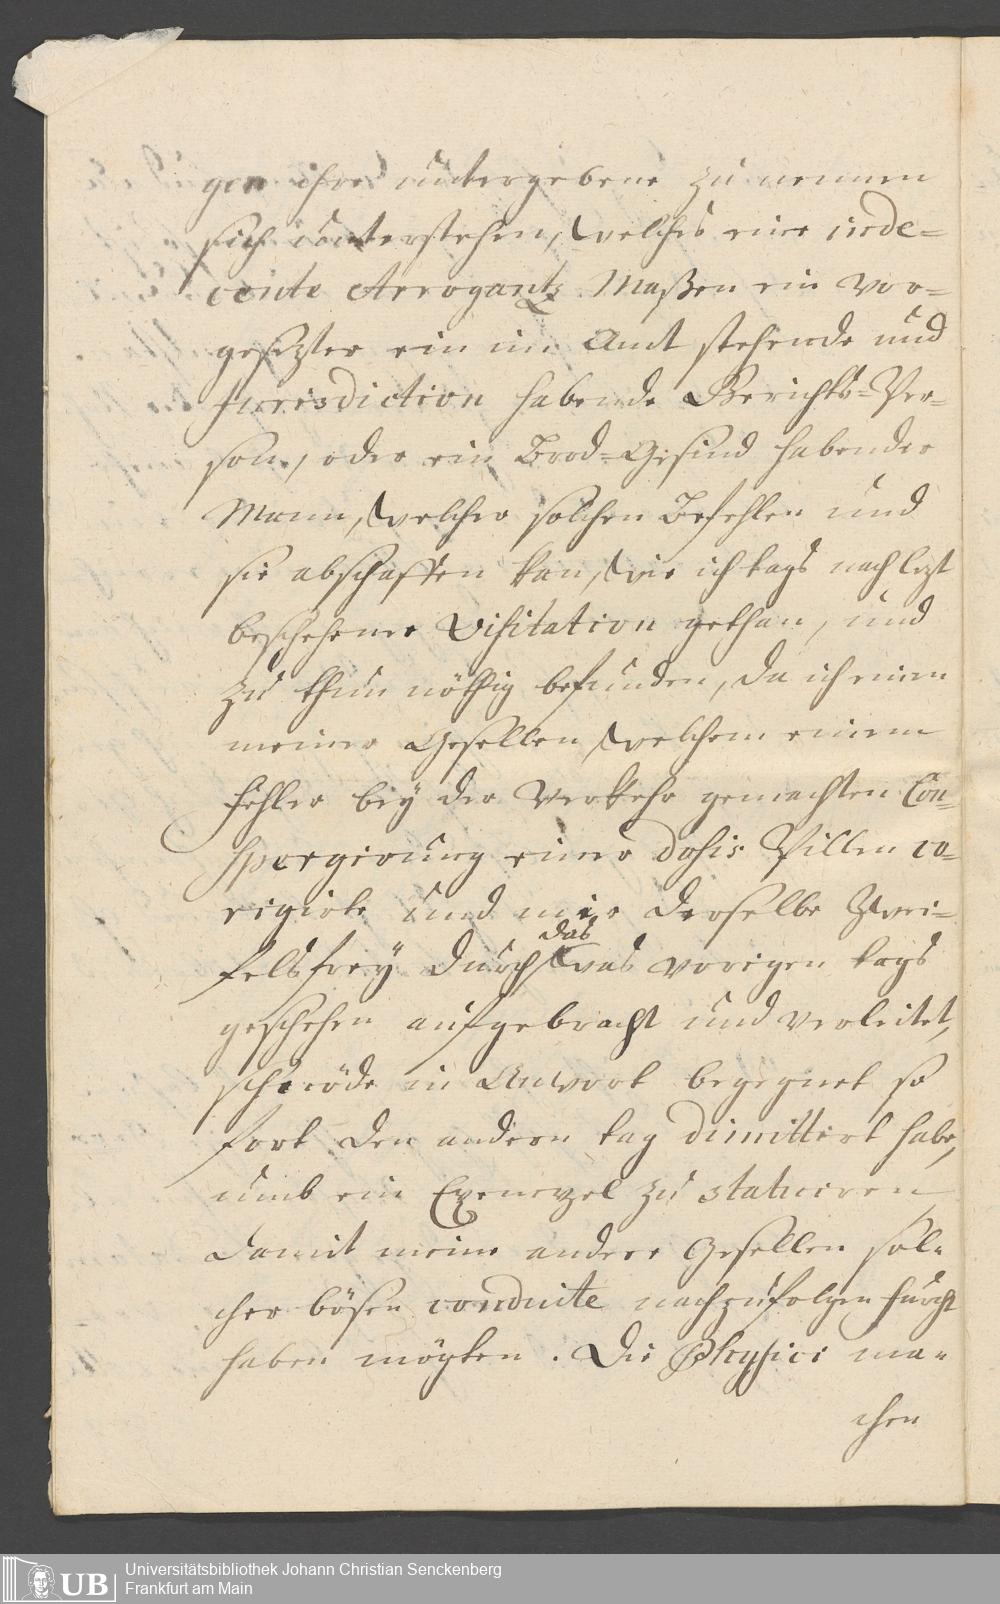 gen ihre untergebene zu nennen
sich unterstehen, welches eine inde=
cente Arrogantz. Maßen ein Vor=
gesezter ein im Amt stehende und
Jurisdiction habende Gerichts=Per=
son, oder ein Brod=Gesind habender
Mann, welcher solchen Befehlen und
sie abschaffen kan, wie ich tags nach lezt
beschehener Visitation gethan, und
zu thun nöthig befunden, da ich einen
meiner Gesellen, welchem einem
Fehler bey der Verkehr gemachten Con=
spergirung einer dosis Pillen co=
rigirte und mir derselbe Zwei=
felsfrey durch das was vorigen tags
geschehen aufgebracht und verleitet,
schnöde in Antwort begegnet so
fort den andern tag dimittirt habe,
umb ein Exempel zu statuiren
Damit meine andere Gesellen sol=
cher bösen conduite nachzufolgen furcht
haben mögten. Die Physici ma=
chen
Universitätsbibliothek Johann Christian Senckenberg
Frankfurt am Main
UB